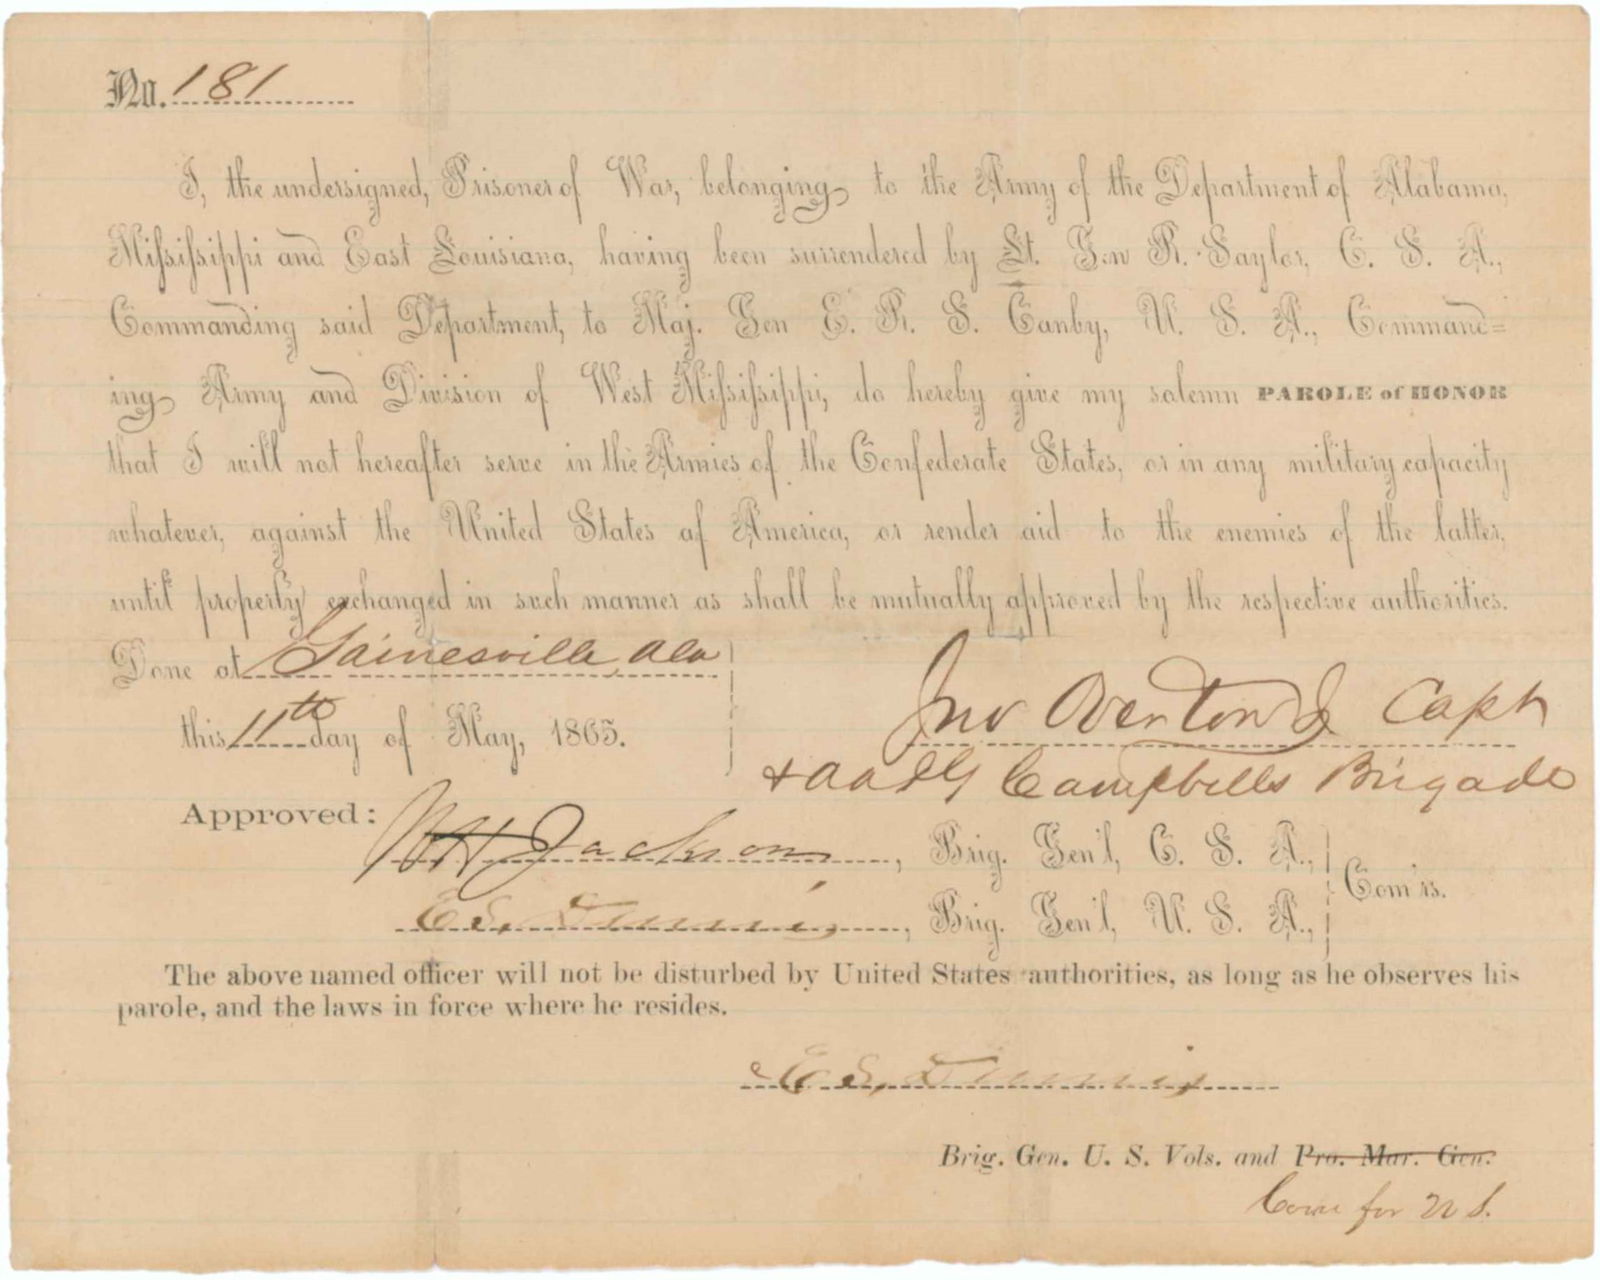 No. 181
I, the undersigned, Prisoner of War, belonging to the Army of the Department of Alabama,
Mississippi and East Louisiana, having been surrendered by Lt. Gen R. Taylor, C. S. A.,
Commanding said Department, to Maj. Gen E. R. S. Canby, U. S. A., Command=
ing Army and Division of West Mississippi, do hereby give my solemn PAROLE of HONOR
that I will not hereafter serve in the Armies of the Confederate States, or in any military capacity
whatever, against the United States of America, or render aid to the enemies of the latter,
until properly exchanged in such manner as shall be mutually approved by the respective authorities.
Done at Gainesville, Ala
this 11th day of May, 1865.
Jno Overton Jr Capt
& AADG Campbells Brigade
Approved:
WH Jackson, Brig. Gen'l, C. S. A.,
E S. Dennis, Brig. Gen'l, U. S. A.,
Com'rs.
The above named officer will not be disturbed by United States authorities, as long as he observes his
parole, and the laws in force where he resides.
E S. Dennis
Brig. Gen. U. S. Vols. and Pro. Mar. Gen.
Com for U S.